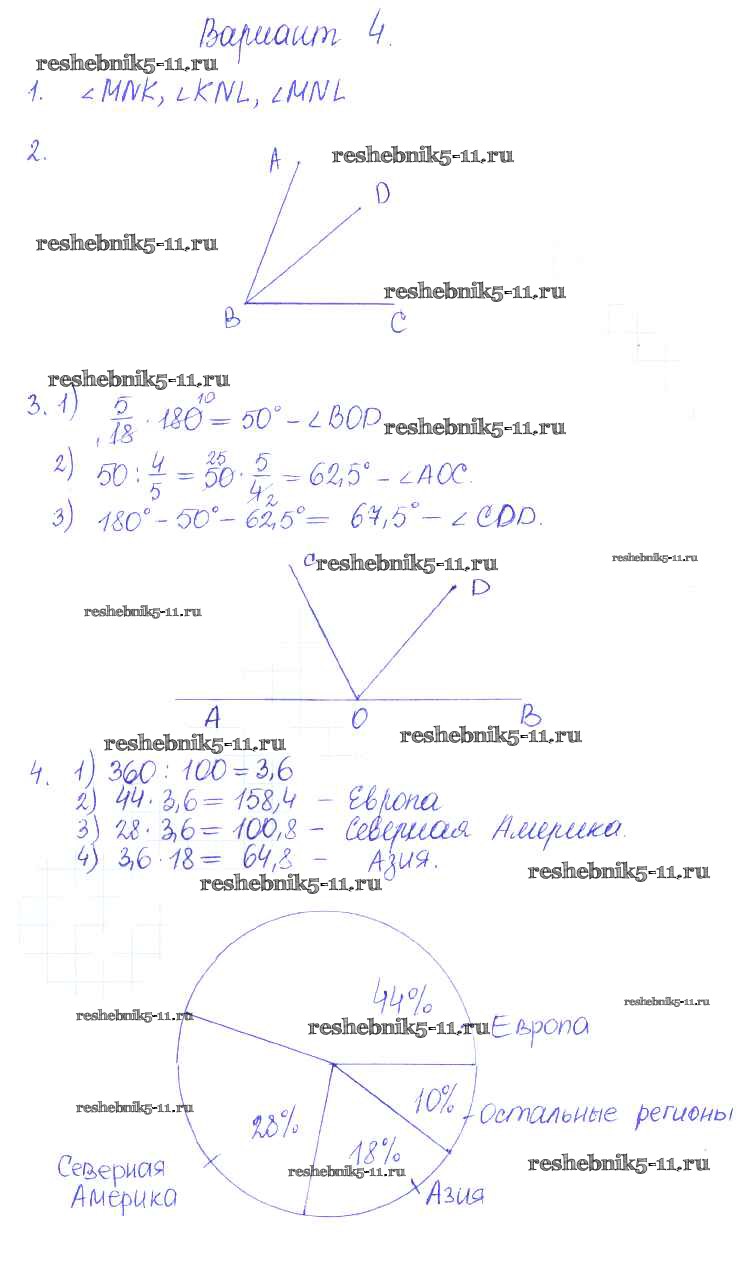 Вариант 4.
reshebnik5-11.ru
1. ∠MNK, ∠KNL, ∠MNL
2.
A
reshebnik5-11.ru
D
reshebnik5-11.ru
reshebnik5-11.ru
B
C
reshebnik5-11.ru
3. 1) 5/18 · 180 10 = 50° – ∠BOD
1
reshebnik5-11.ru
2) 50 : 4/5 = 50 25 · 5/4 2 = 62,5° – ∠AOC.
3) 180° – 50° – 62,5° = 67,5° – ∠COD.
C
reshebnik5-11.ru
reshebnik5-11.ru
D
reshebnik5-11.ru
A O B
reshebnik5-11.ru
reshebnik5-11.ru
4. 1) 360 : 100 = 3,6
2) 44 · 3,6 = 158,4 – Европа
3) 28 · 3,6 = 100,8 – Северная Америка.
4) 3,6 · 18 = 64,8 – Азия.
reshebnik5-11.ru
reshebnik5-11.ru
44%
reshebnik5-11.ru
reshebnik5-11.ru
reshebnik5-11.ru
Европа
10%
reshebnik5-11.ru
Остальные регионы
28%
18%
Северная
Америка
reshebnik5-11.ru
reshebnik5-11.ru
Азия